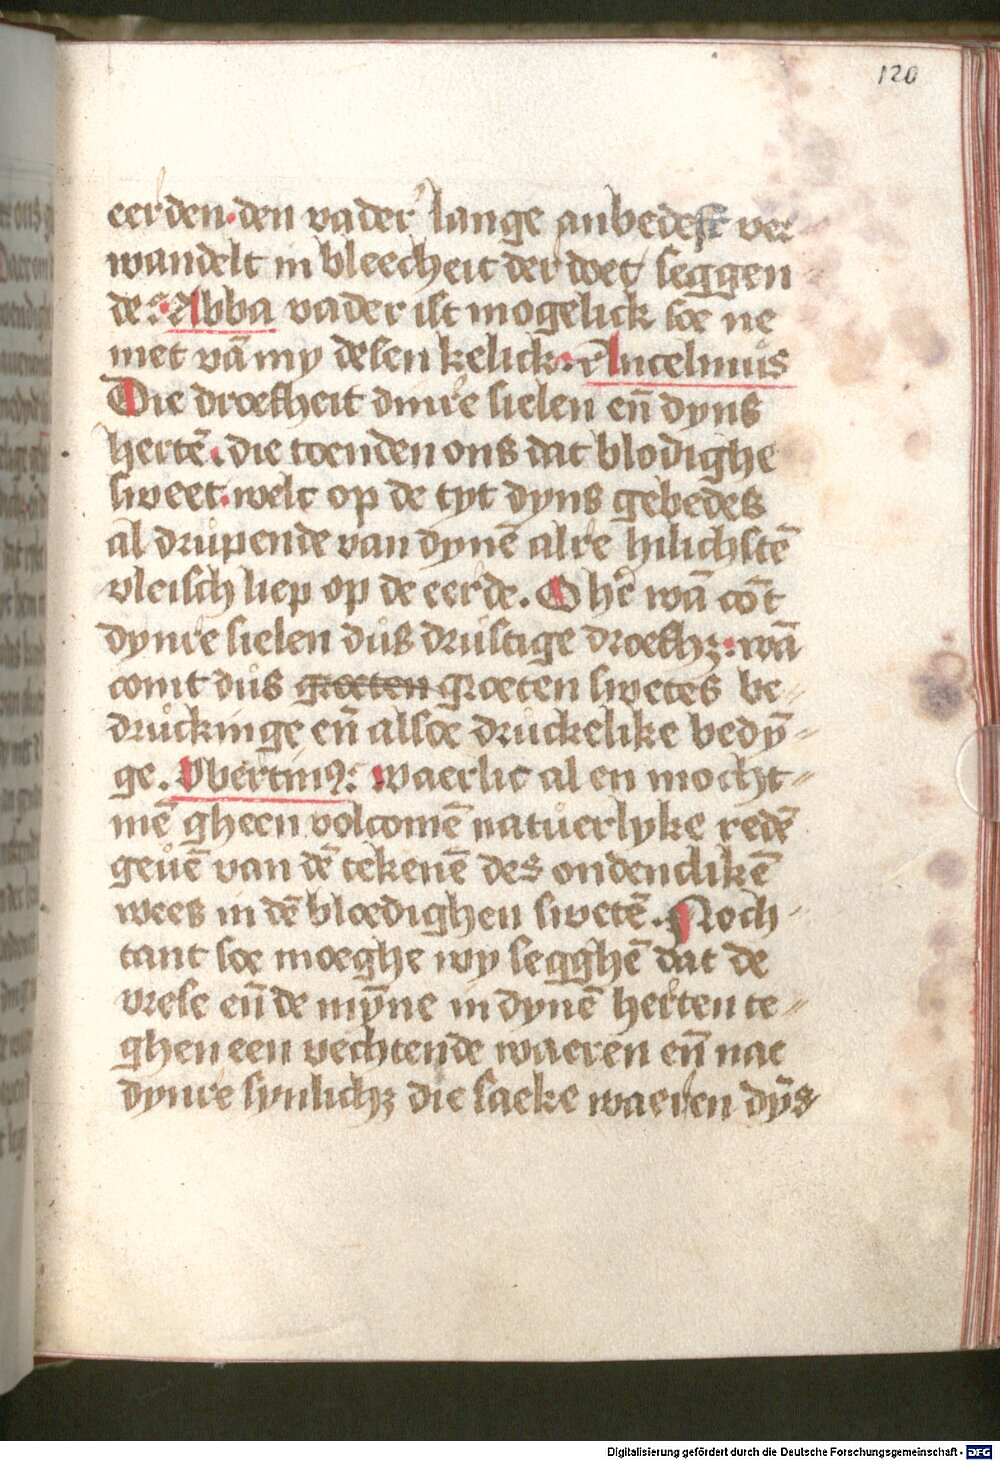 120
eerden. den vader lange anbedest ver
wandelt in bleecheit der doet seggen
de: Abba vader ist mogelick soe ne
met vā my desen kelick. Ancelmus
Die droefheit dinre sielen en̄ dyns
hertē. die toenden ons dat blodighe
sweet. welc op de tyt dyns gebedes
al drupende van dynē alre hilichstē
vleisch liep op de eerde. O he᷑ wā cōt
dynre sielen dus drustige droefhꝫ. wā
comt dus groeten groeten swetes be⸗
druckinge en̄ alsoe druckelike bedȳ⸗
ge. Vbertinꝰ: Waerlic al en mocht⸗
mē gheen volcomē natuerlyke redē
geuē van dē tekenē des ondenclikē
wees in dē bloedighen swetē. Noch⸗
tant soe moeghe wy segghē dat de
vrese en̄ de mȳne in dynē herten te⸗
ghen een vechtende waeren en̄ nae
dynre synlichꝫ die saeke waeren dȳs⸗
Digitalisierung gefördert durch die Deutsche Forschungsgemeinschaft - DFG